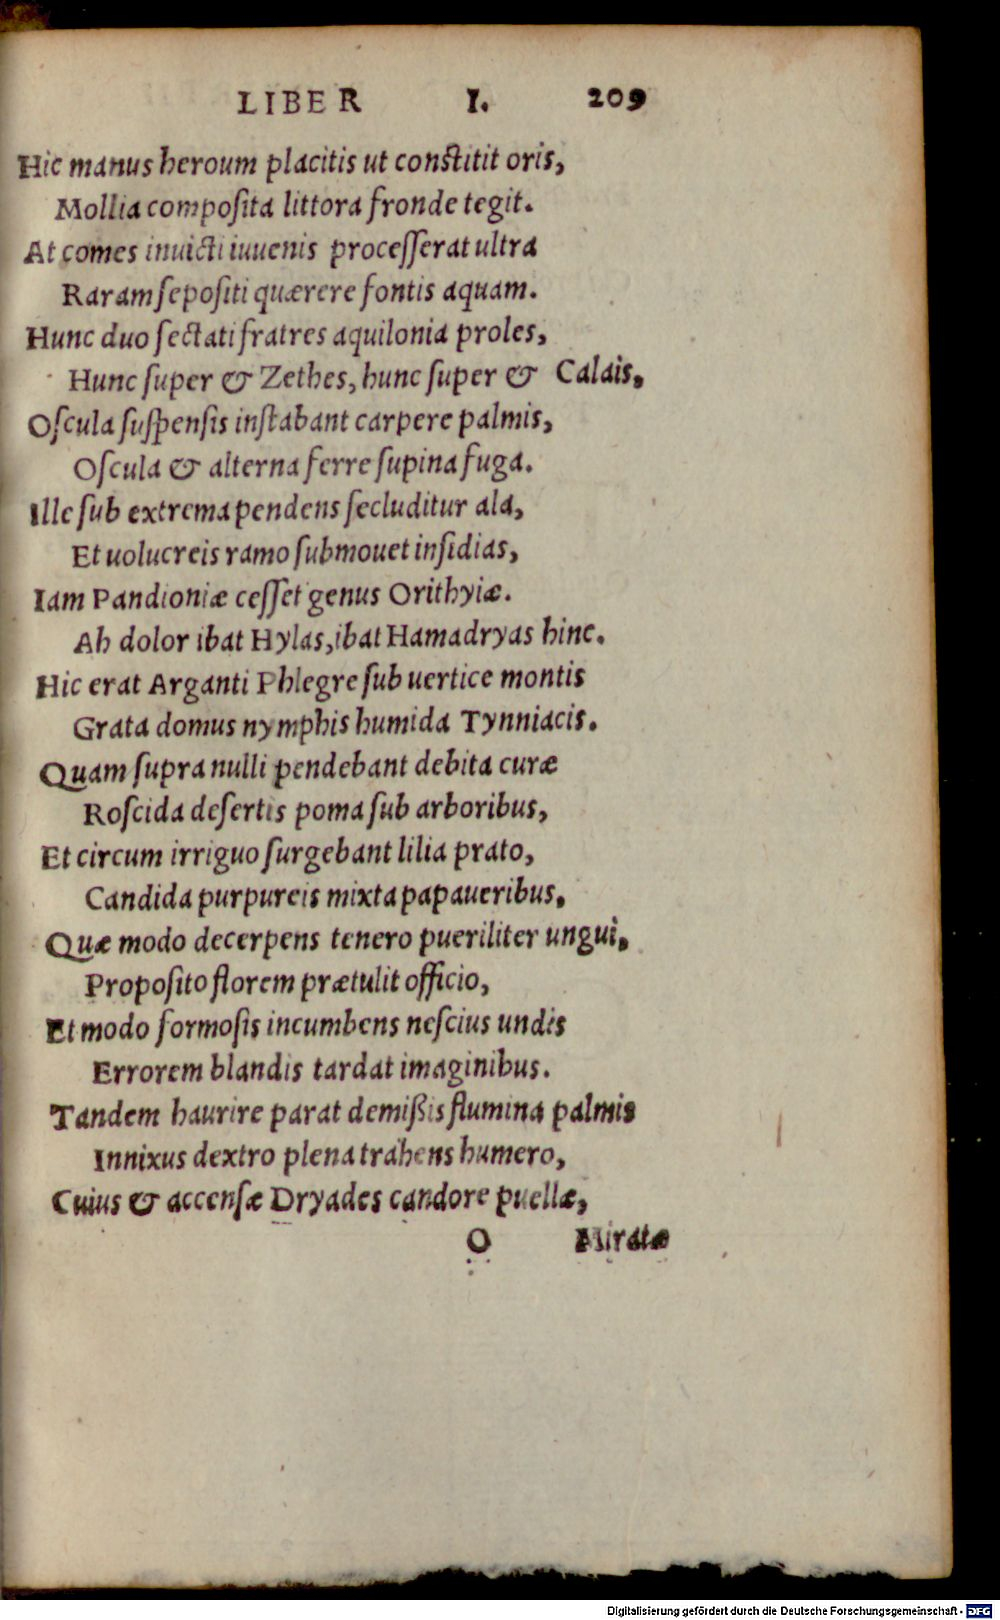 LIBER I. 209
Hic manus heroum placitis ut constitit oris,
Mollia composita littora fronde tegit.
At comes inuicti iuuenis processerat ultra
Raram sepositi quærere fontis aquam.
Hunc duo sectati fratres aquilonia proles,
Hunc super & Zethes, hunc super & Calais,
Oscula suspensis instabant carpere palmis,
Oscula & alterna ferre supina fuga.
Ille sub extrema pendens secluditur ala,
Et uolucreis ramo submouet insidias,
Iam Pandioniæ cesset genus Orithyiæ.
Ah dolor ibat Hylas, ibat Hamadryas hinc.
Hic erat Arganti Phlegre sub uertice montis
Grata domus nymphis humida Tynniacis.
Quam supra nulli pendebant debita curæ
Roscida desertis poma sub arboribus,
Et circum irriguo surgebant lilia prato,
Candida purpureis mixta papaueribus.
Quæ modo decerpens tenero pueriliter ungui,
Proposito florem prætulit officio,
Et modo formosis incumbens nescius undis
Errorem blandis tardat imaginibus.
Tandem haurire parat demißis flumina palmis
Innixus dextro plena trahens humero,
Cuius & accensæ Dryades candore puellæ,
O Miratæ
Digitalisierung gefördert durch die Deutsche Forschungsgemeinschaft - DFG